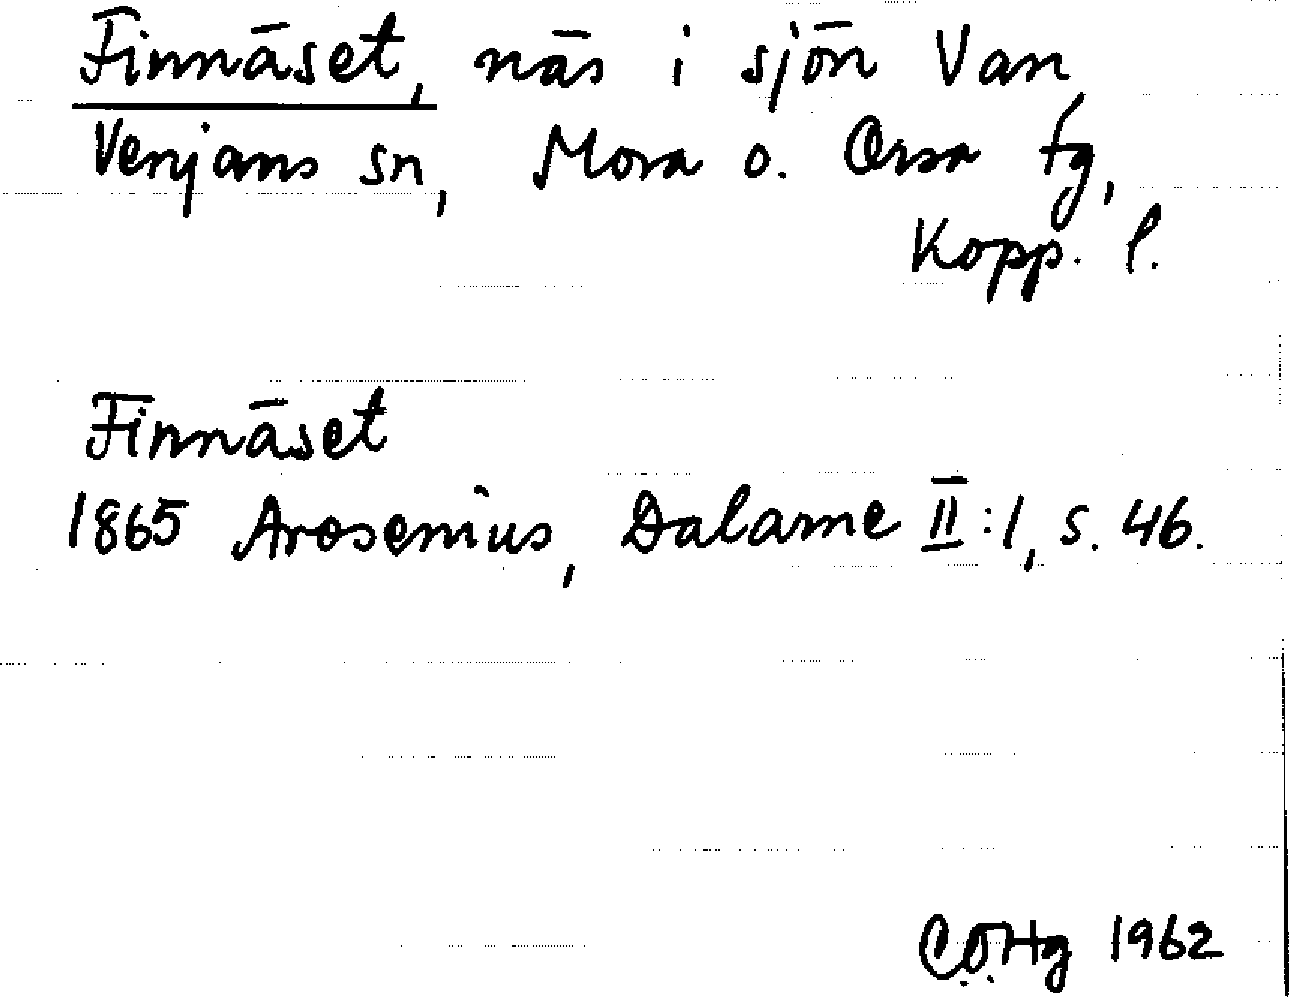 Finnäset, näs i sjön Van,
Venjans sn, Mora o. Orsa tg,
Kopp. l.
Finnäset
1865 Arosenius, Dalarne II:1, s. 46.
CÖHg 1962